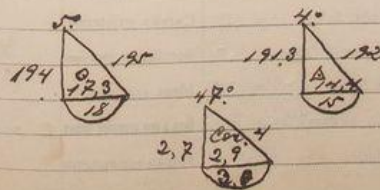 5°
194 195
17,3
18
4°
191.3 192
14,4
15
47°
Cor. 4
2,7 2,9